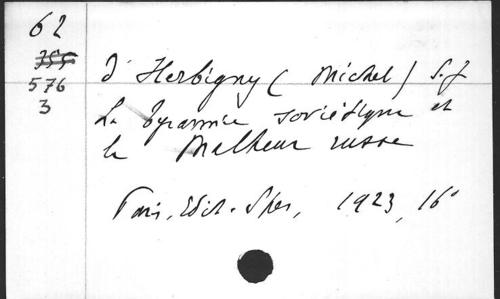 62
355
576
3
d'Herbigny (Michel) S.J
La tyrannie soviétique et
le Malheur russe
Paris, Edit. Spes, 1923, 16°